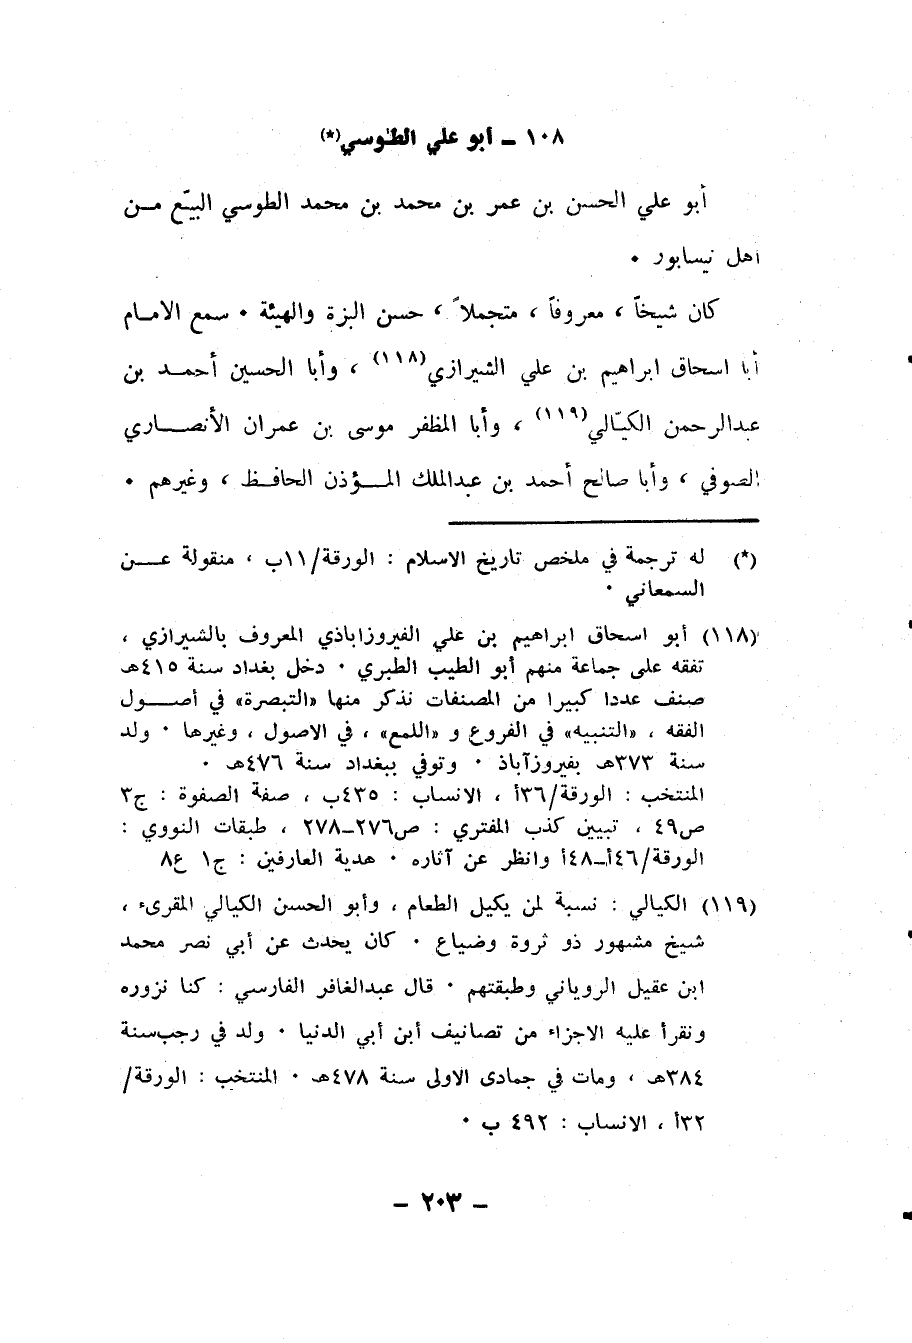 ١٠٨ ـ أبو علي الطوسي(*)
أبو علي الحسن بن عمر بن محمد بن محمد الطوسي البيّع مـن
أهل نيسابور ٠
كان شيخاً ، معروفاً ، متجملاً ، حسن البزة والهيئة ٠ سمع الامـام
أبا اسحاق ابراهيم بن علي الشيرازي(١١٨) ، وأبا الحسين أحمـد بن
عبدالرحمن الكيّالي(١١٩) ، وأبا المظفر موسى بن عمران الأنصـاري
الصوفي ، وأبا صالح أحمد بن عبدالملك المـؤذن الحافـظ ، وغيرهم ٠
(*) له ترجمة في ملخص تاريخ الاسلام : الورقة/١١ب ، منقولة عـن
السمعاني ٠
(١١٨) أبو اسحاق ابراهيم بن علي الفيروزاباذي المعروف بالشيرازي ،
تفقه على جماعة منهم أبو الطيب الطبري ٠ دخل بغداد سنة ٤١٥هـ
صنف عددا كبيرا من المصنفات نذكر منها «التبصرة» في أصـول
الفقه ، «التنبيه» في الفروع و «اللمع» ، في الاصول ، وغيرها ٠ ولد
سنة ٣٧٣هـ بفيروزآباذ ٠ وتوفي ببغداد سنة ٤٧٦هـ ٠
المنتخب : الورقة/٣٦أ ، الانساب : ٤٣٥ب ، صفة الصفوة : ج٣
ص٤٩ ، تبيين كذب المفتري : ص٢٧٦ـ٢٧٨ ، طبقات النووي :
الورقة/٤٦أـ٤٨أ وانظر عن آثاره ٠ هدية العارفين : ج١ ع٨
(١١٩) الكيالي : نسبة لمن يكيل الطعام ، وأبو الحسن الكيالي المقرىء ،
شيخ مشهور ذو ثروة وضياع ٠ كان يحدث عن أبي نصر محمد
ابن عقيل الروياني وطبقتهم ٠ قال عبدالغافر الفارسي : كنا نزوره
ونقرأ عليه الاجزاء من تصانيف أبن أبي الدنيا ٠ ولد في رجب‌سنة
٣٨٤هـ ، ومات في جمادى الاولى سنة ٤٧٨هـ ٠ المنتخب : الورقة/
٣٢أ ، الانساب : ٤٩٢ ب ٠
ـ ٢٠٣ ـ